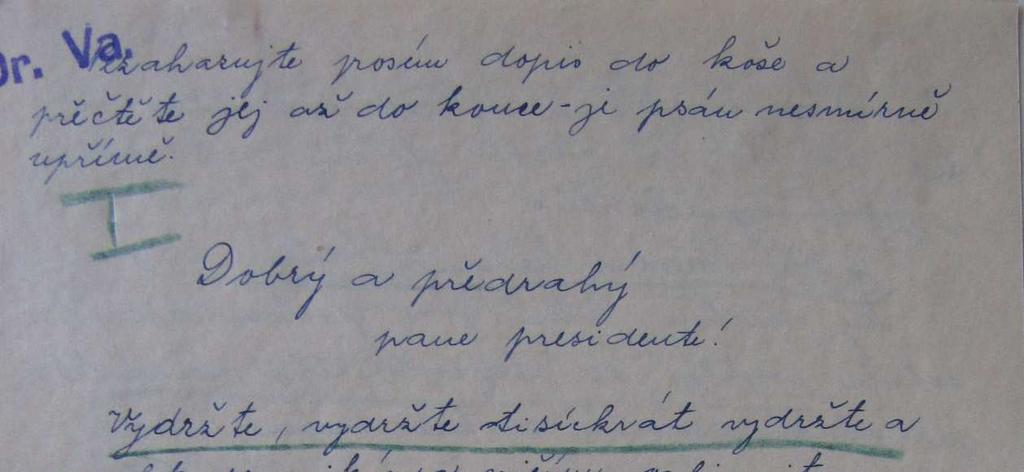 Dr. Va.
Nezahazujte prosím dopis do koše a
přečtěte jej až do konce - je psán nesmírně
upřímě.
I
Dobrý a předrahý
pane presidente!
Vydržte, vydržte tisíckrát vydržte a